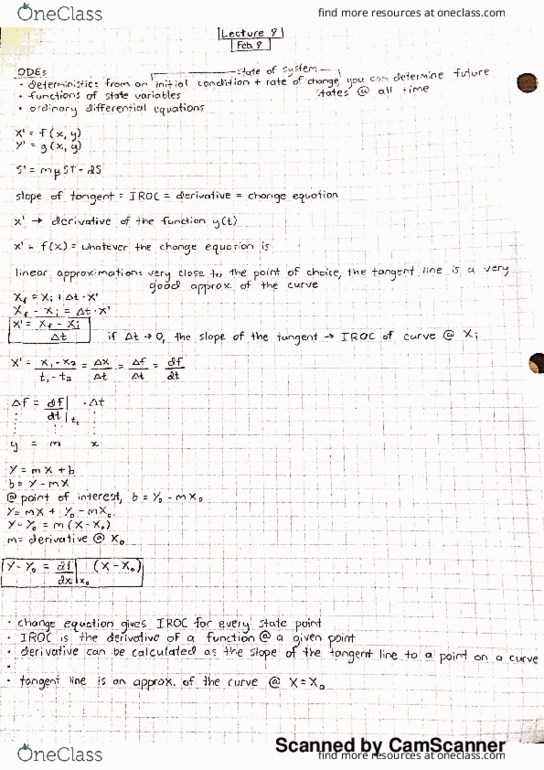 OneClass
find more resources at oneclass.com
Lecture 9
Feb. 9
ODEs
state of system
• deterministic: from an initial condition + rate of change, you can determine future
states @ all time
• functions of state variables
• ordinary differential equations
X' = f(x, y)
Y' = g(x, y)
S' = mβST - dS
slope of tangent = IROC = derivative = change equation
x' → derivative of the function y(t)
x' = f(x) = whatever the change equation is
linear approximation: very close to the point of choice, the tangent line is a very
good approx of the curve
Xf = Xi + Δt · X'
Xf - Xi = Δt · X'
X' = Xf - Xi / Δt
if Δt → 0, the slope of the tangent → IROC of curve @ Xi
X' = X1 - X2 / t1 - t2 = Δx / Δt = Δf / Δt = df / dt
Δf = df / dt | t0 · Δt
y = m x
Y = mX + b
b = Y - mX
@ point of interest, b = Y0 - mX0
Y = mX + Y0 - mX0
Y - Y0 = m(X - X0)
m = derivative @ X0
Y - Y0 = df / dx | x0 (X - X0)
• change equation gives IROC for every state point
• IROC is the derivative of a function @ a given point
• derivative can be calculated as the slope of the tangent line to a point on a curve
•
• tangent line is an approx. of the curve @ X = X0
Scanned by CamScanner
OneClass
find more resources at oneclass.com